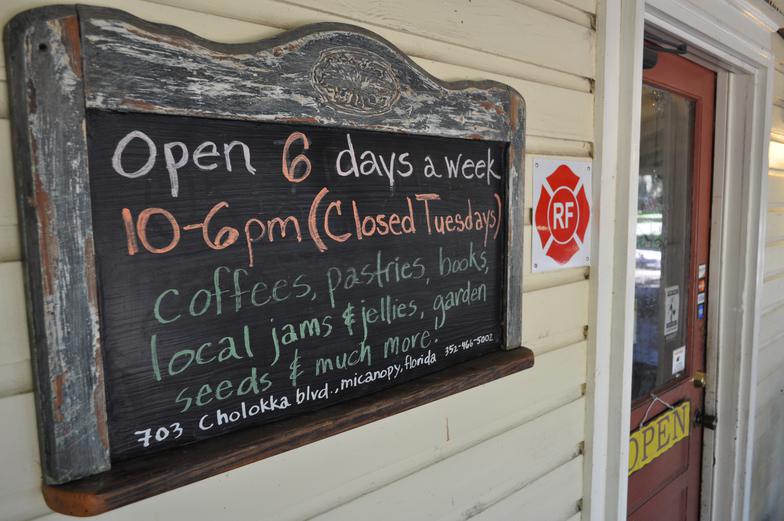 Open 6 days a week
10-6pm (Closed Tuesdays)
coffees, pastries, books,
local jams & jellies, garden
seeds & much more!
703 Cholokka blvd., micanopy, florida 352-466-5002
RF
OPEN